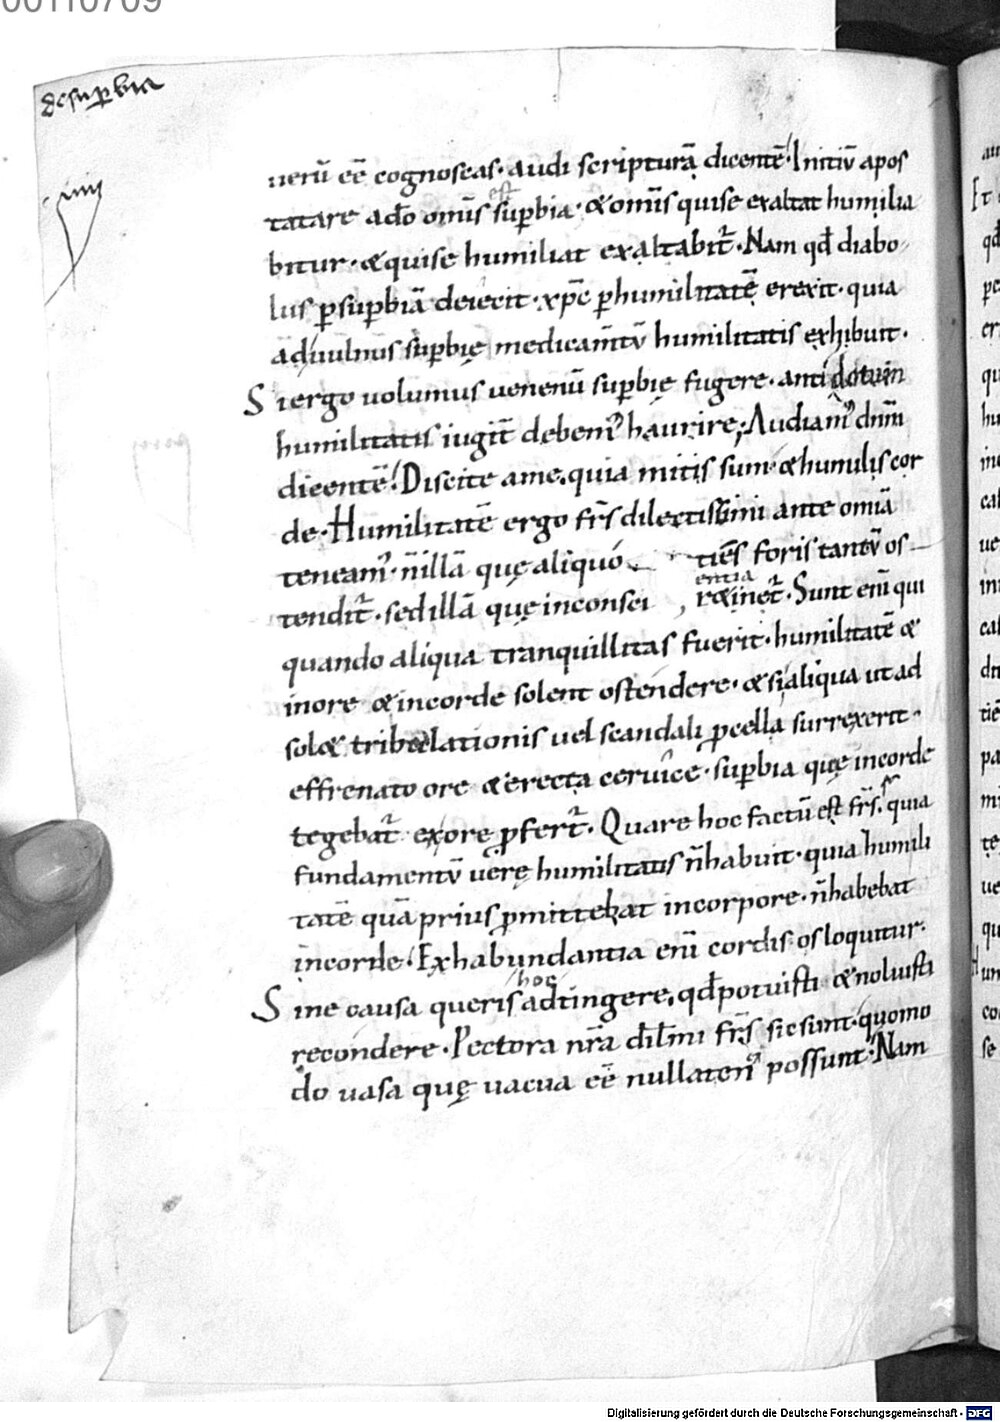 00110709
desuꝑbia
.xiiii
uerū eē cognoscas· audi scripturā dicentē· Initiū apos
est
tatare a dō omīs suꝑbia· & omīs qui se exaltat humilia
bitur· & qui se humiliat exaltabit̄· Nam qđ diabo
lus ꝑ suꝑbiā deiecit· xp̄c ꝑ humilitatē erexit· quia
ad uulnus suꝑbię medicam̄tū humilitatis exhibuit·
Si ergo uolumus uenenū suꝑbię fugere· antidotum
humilitatis iugit̄ debem᾽ haurire; Audiam᾽ dnm̄
dicentē· Discite a me, quia mitis sum· & humilis cor
de· Humilitatē ergo frs̄ dilectissimi ante omīa
teneam᾽· n̄ illā quę aliquo tiēs foris tantū os
entia
tendit̄· sed illā quę in consci r&inet̄· Sunt eni̅ qui
quando aliqua tranquillitas fuerit· humilitatē &
in ore & in corde solent ostendere· & si aliqua ut ad
sol& tribulationis uel scandali ꝓcella surrexerit·
effrenato ore & erecta ceruice· suꝑbia quę in corde
tegebat̄ ex ore ꝓfert̄· Quare hoc factū est frs̄· quia
fundamentū uerę humilitatis n̄ habuit· quia humili
tatē quā prius ꝓmittebat in corpore· n̄ habebat
in corde· Ex habundantia eni̅ cordis os loquitur·
hoc
Sine causa queris adtingere, qđ potuisti & noluisti
recondere· Pectora nr̄a dil̄mi frs̄ sic sunt· quomo
do uasa quę uacua eē nullaten᾽ possunt· Nam
Digitalisierung gefördert durch die Deutsche Forschungsgemeinschaft - DFG